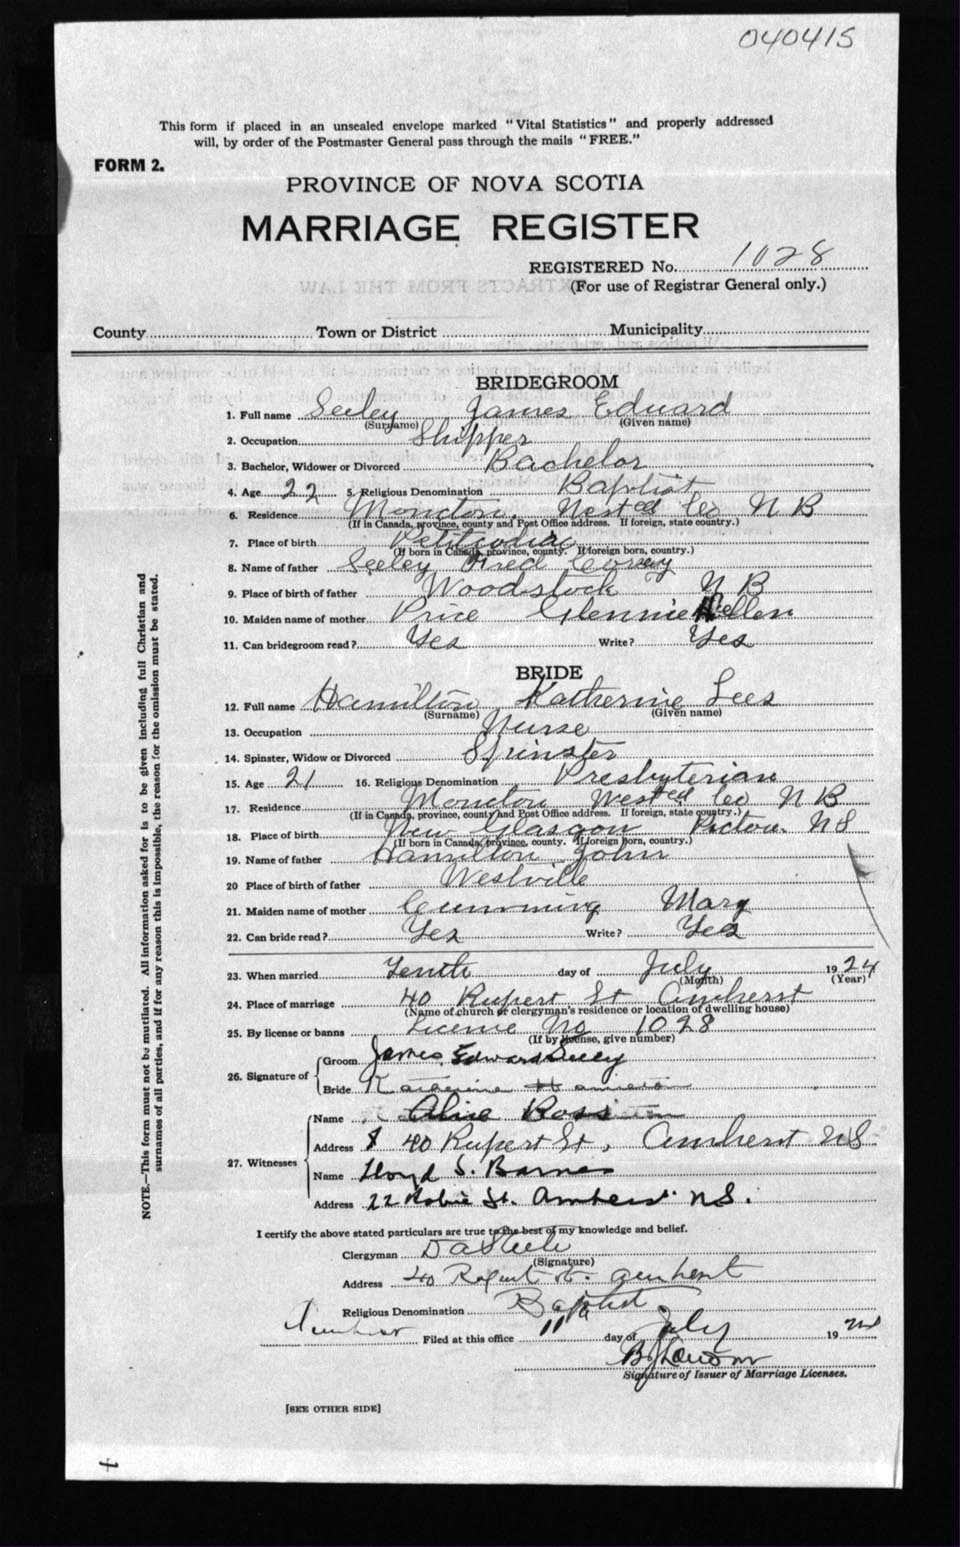 040415
This form if placed in an unsealed envelope marked "Vital Statistics" and properly addressed
will, by order of the Postmaster General pass through the mails "FREE."
FORM 2.
PROVINCE OF NOVA SCOTIA
MARRIAGE REGISTER
REGISTERED No. 1028
(For use of Registrar General only.)
County Town or District Municipality
BRIDEGROOM
1. Full name Seeley James Edward
(Surname) (Given name)
2. Occupation Shipper
3. Bachelor, Widower or Divorced Bachelor
4. Age 22 5. Religious Denomination Baptist
6. Residence Moncton, West ed Co N B
(If in Canada, province, county and Post Office address. If foreign, state country.)
7. Place of birth Petitcodiac
(If born in Canada, province, county. If foreign born, country.)
8. Name of father Seeley Fred Covey
9. Place of birth of father Woodstock N B
10. Maiden name of mother Price Glennie Hellen
11. Can bridegroom read? Yes Write? Yes
BRIDE
12. Full name Hamilton Katherine Lees
(Surname) (Given name)
13. Occupation Nurse
14. Spinster, Widow or Divorced Spinster
15. Age 21 16. Religious Denomination Presbyterian
17. Residence Moncton West ed Co N B
(If in Canada, province, county and Post Office address. If foreign, state country.)
18. Place of birth New Glasgow Pictou NS
(If born in Canada, province, county. If foreign born, country.)
19. Name of father Hamilton John
20 Place of birth of father Westville
21. Maiden name of mother Cumming Mary
22. Can bride read? Yes Write? Yes
23. When married Tenth day of July 1924
(Month) (Year)
24. Place of marriage 40 Rupert St Amherst
(Name of church or clergyman's residence or location of dwelling house)
25. By license or banns License No 1028
(If by license, give number)
26. Signature of Groom James Edward Seeley
Bride Katherine Hamilton
27. Witnesses Name Alice Ross
Address 40 Rupert St, Amherst NS
Name Lloyd S. Barnes
Address 22 Robie St. Amherst NS.
I certify the above stated particulars are true to the best of my knowledge and belief.
Clergyman D A Steele
(Signature)
Address 40 Rupert St. Amherst
Religious Denomination Baptist
Amherst Filed at this office 11th day of July 1924
Signature of Issuer of Marriage Licenses.
[SEE OTHER SIDE]
NOTE.—This form must not be mutilated. All information asked for is to be given including full Christian and
surnames of all parties, and if for any reason this is impossible, the reason for the omission must be stated.